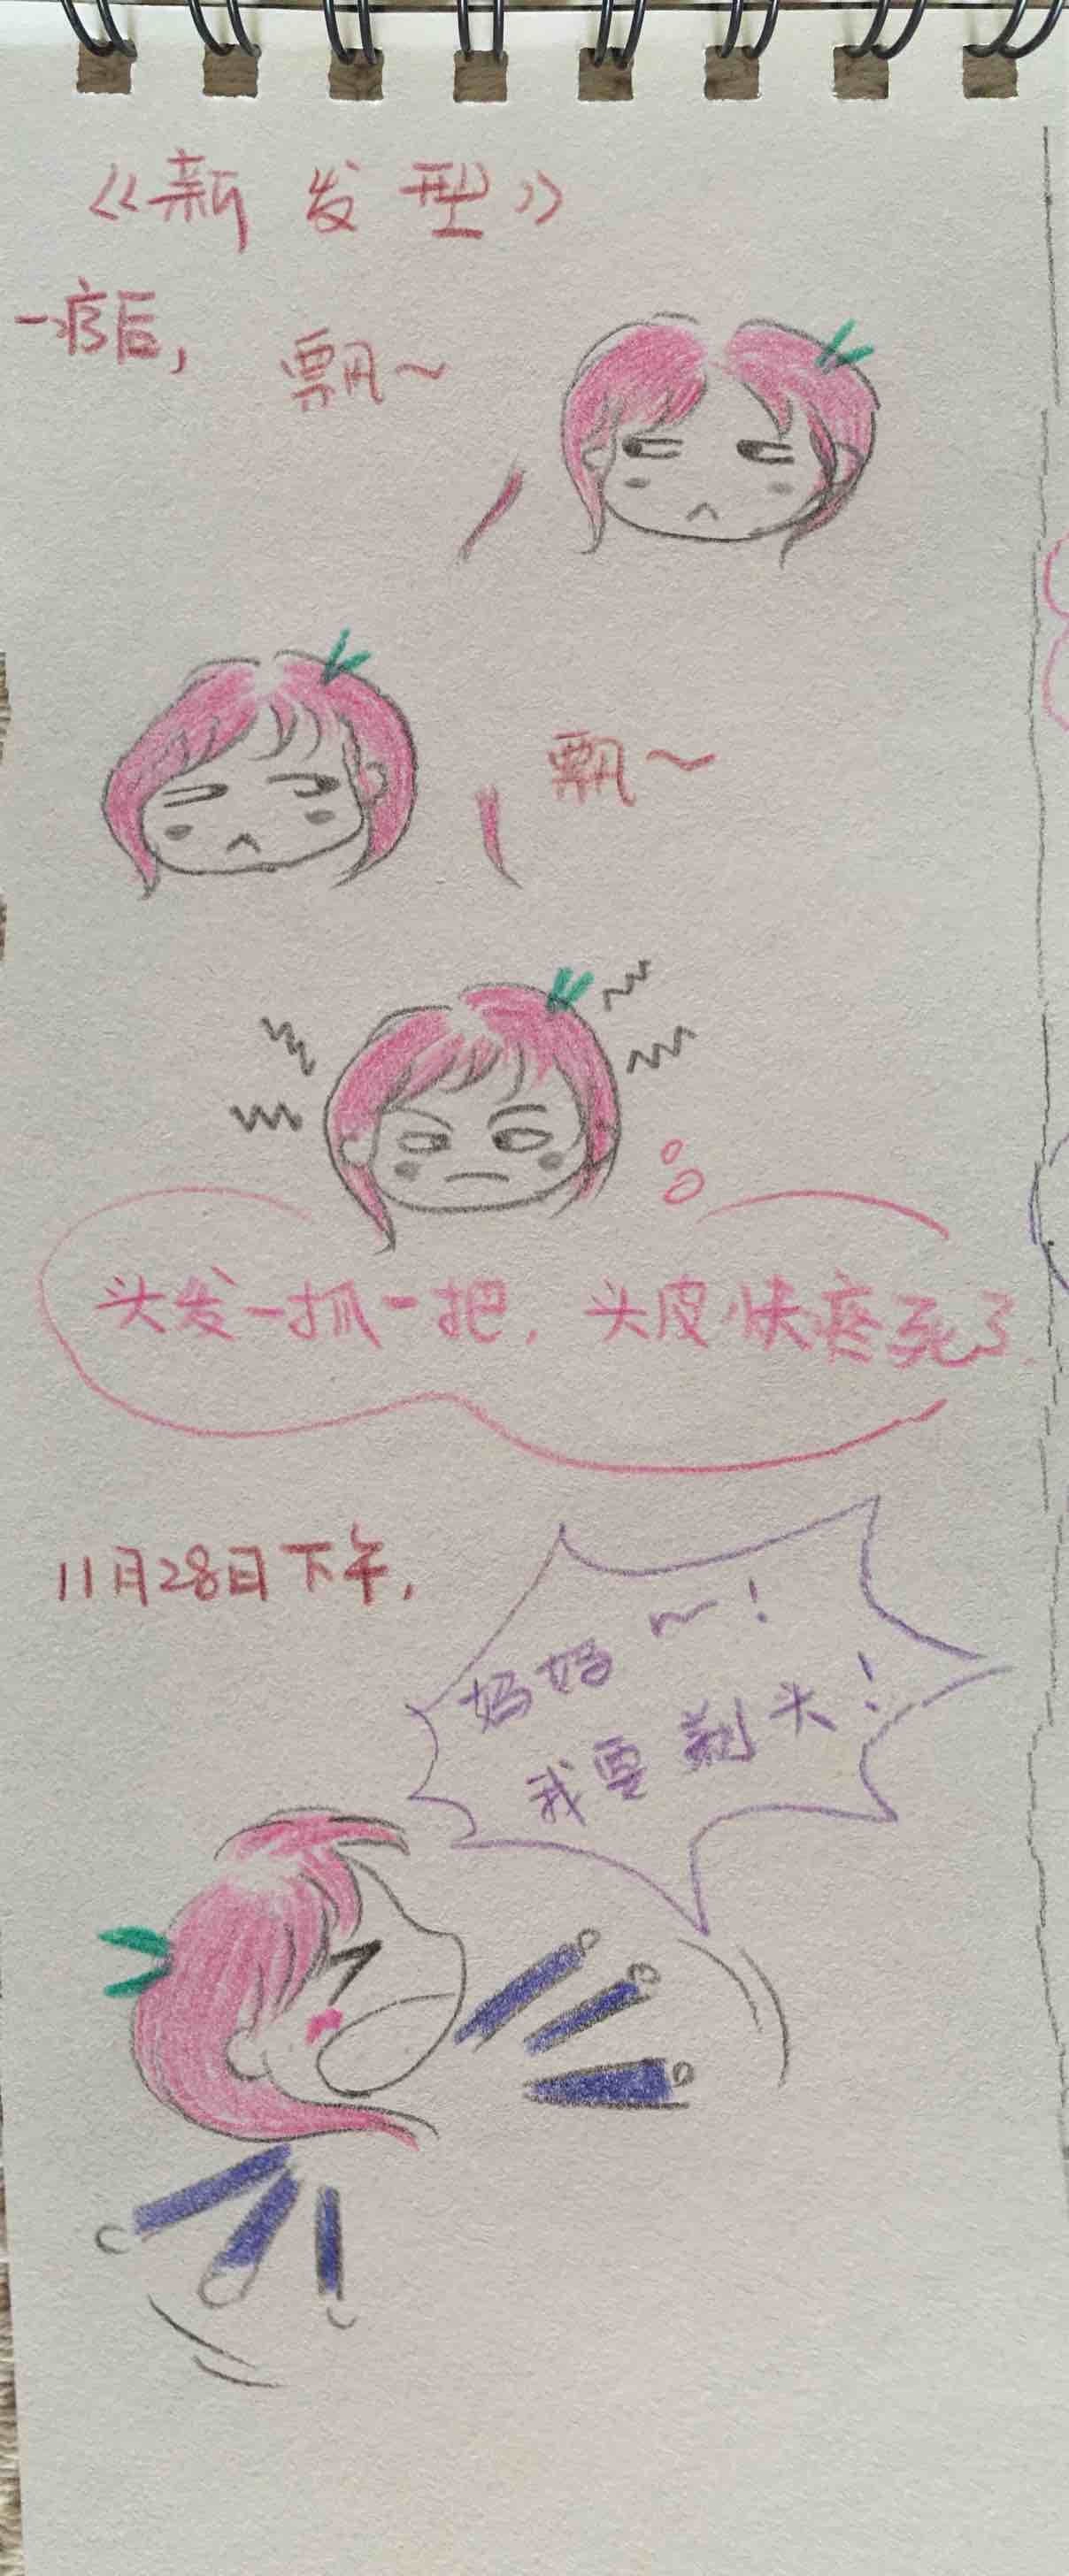 《新发型》
一疗后，
飘～
飘～
头发一抓一把，头皮快疼死了
11月28日下午，
妈妈～！
我要剃头！